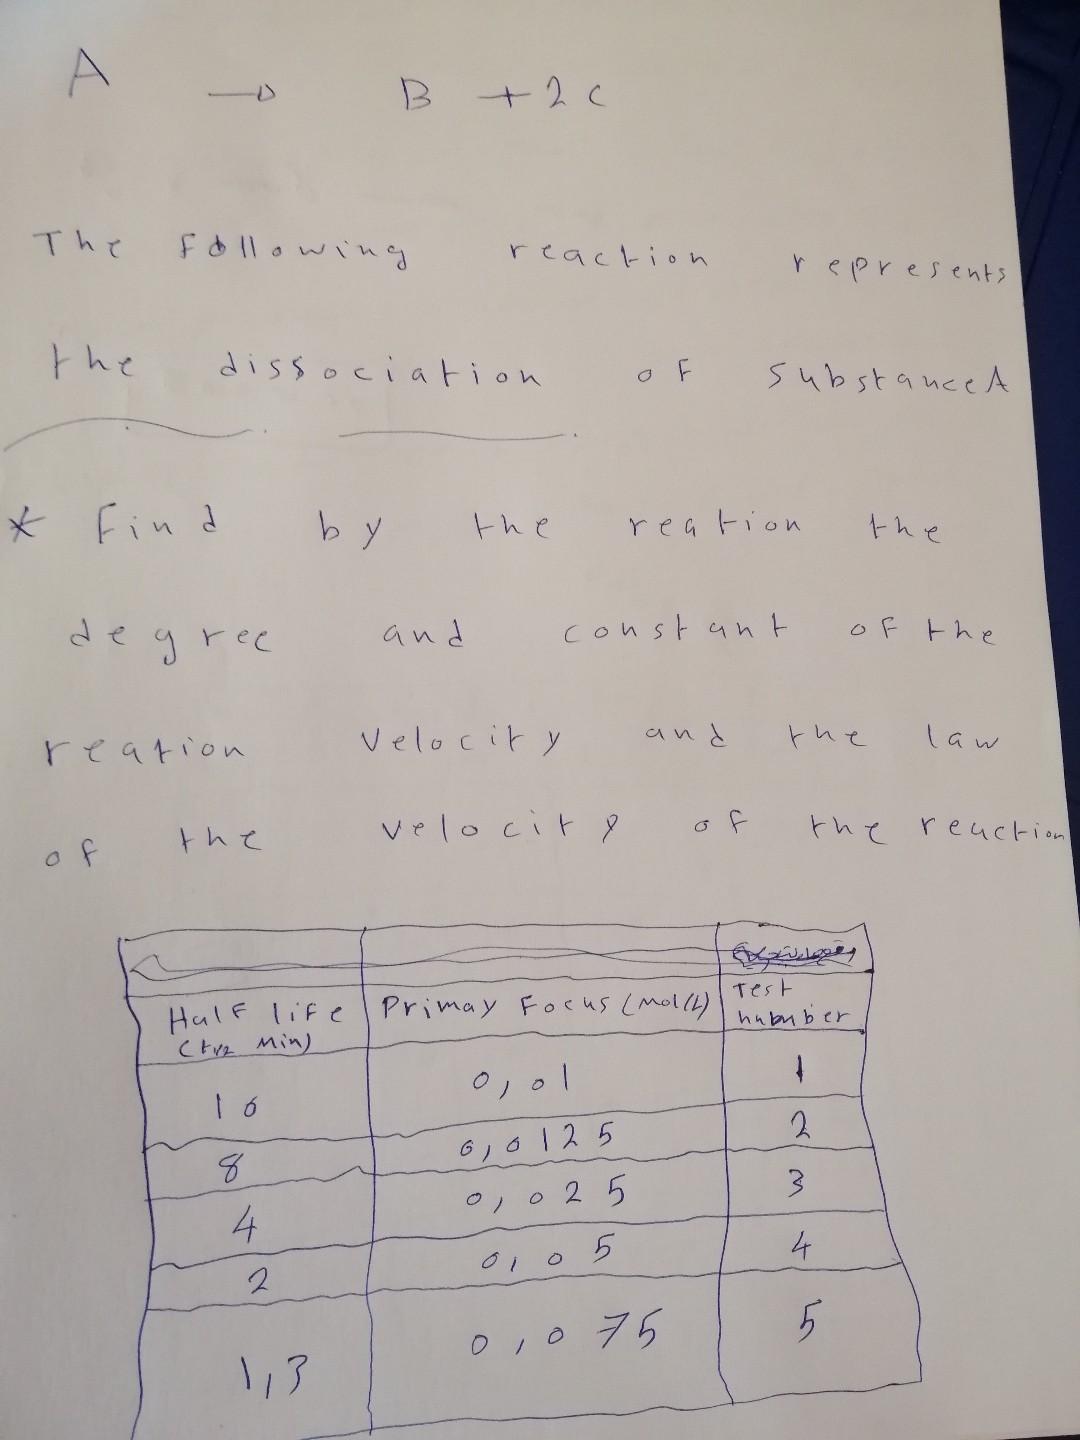 A → B + 2C
The Following reaction represents
the dissociation of substance A
* Find by the reation the
degree and constant of the
reation velocity and the law
of the velocity of the reaction
Half life (t1/2 Min) Primay Focus (mol/L) Test
10 0,01 1
8 0,0125 2
4 0,025 3
2 0,05 4
1,3 0,075 5